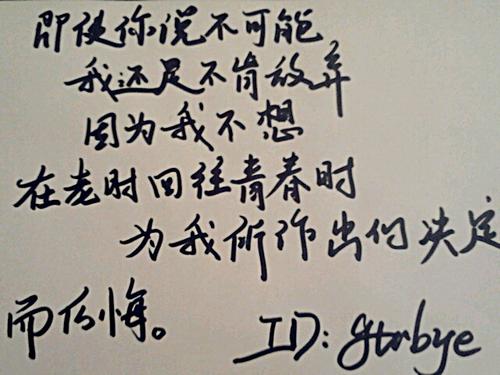 即使你说不可能
我还是不肯放弃
因为我不想
在老时回往青春时
为我所作出的决定
而后悔。 ID: